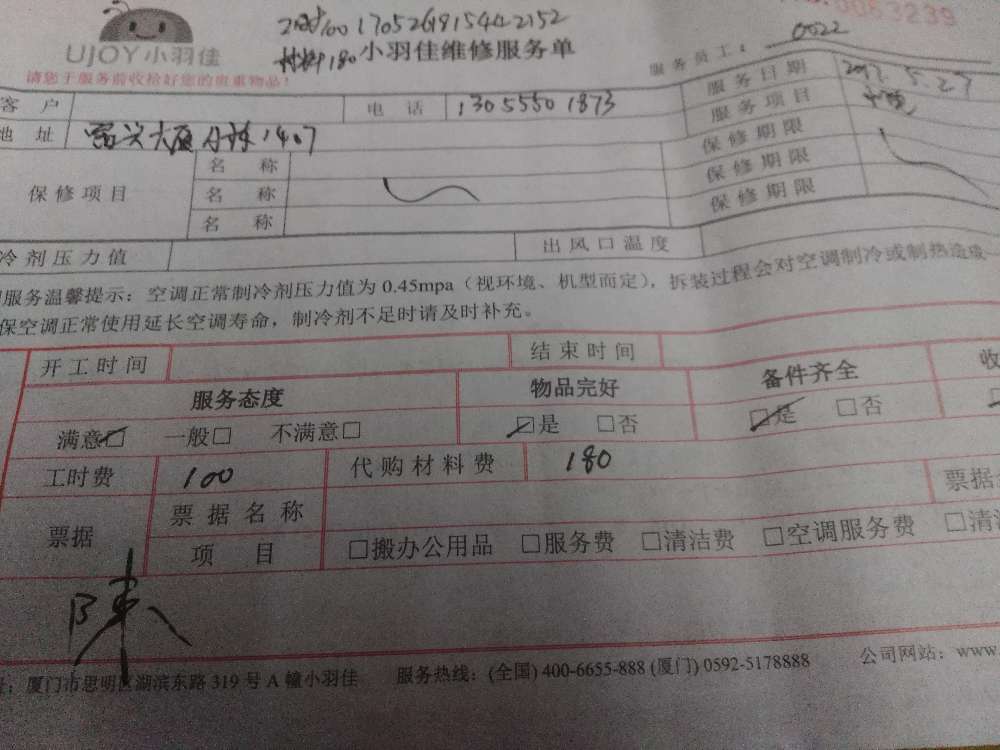 0063239
UJOY小羽佳
请您于服务前收拾好您的贵重物品!
1705261815442152
180 小羽佳维修服务单
服务员工: 0022
客户 电话 13055501873 服务日期 2017.5.27
地址 大厦 1407 服务项目
保修项目 名称 保修期限
名称 保修期限
名称 保修期限
冷剂压力值 出风口温度
服务温馨提示:空调正常制冷剂压力值为 0.45mpa(视环境、机型而定),拆装过程会对空调制冷或制热造成
保空调正常使用延长空调寿命,制冷剂不足时请及时补充。
开工时间 结束时间
服务态度 物品完好 备件齐全 收
满意□ 一般□ 不满意□ □是 □否 □是 □否
工时费 100 代购材料费 180
票据 票据名称 票据
项目 □搬办公用品 □服务费 □清洁费 □空调服务费 □清
陈
厦门市思明区湖滨东路 319 号 A 幢小羽佳 服务热线:(全国) 400-6655-888 (厦门) 0592-5178888 公司网站:www.